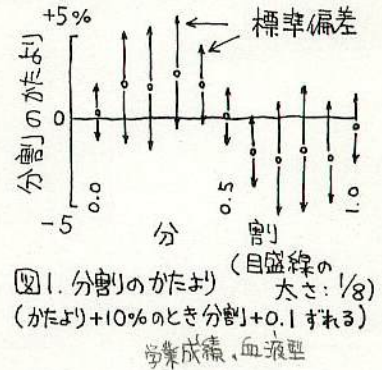 +5%
標準偏差
分割のかたより
0
-5
0.0
0.5
1.0
分割
(目盛線の
太さ:1/8)
図1.分割のかたより
(かたより+10%のとき分割+0.1ずれる)
学業成績、血液型